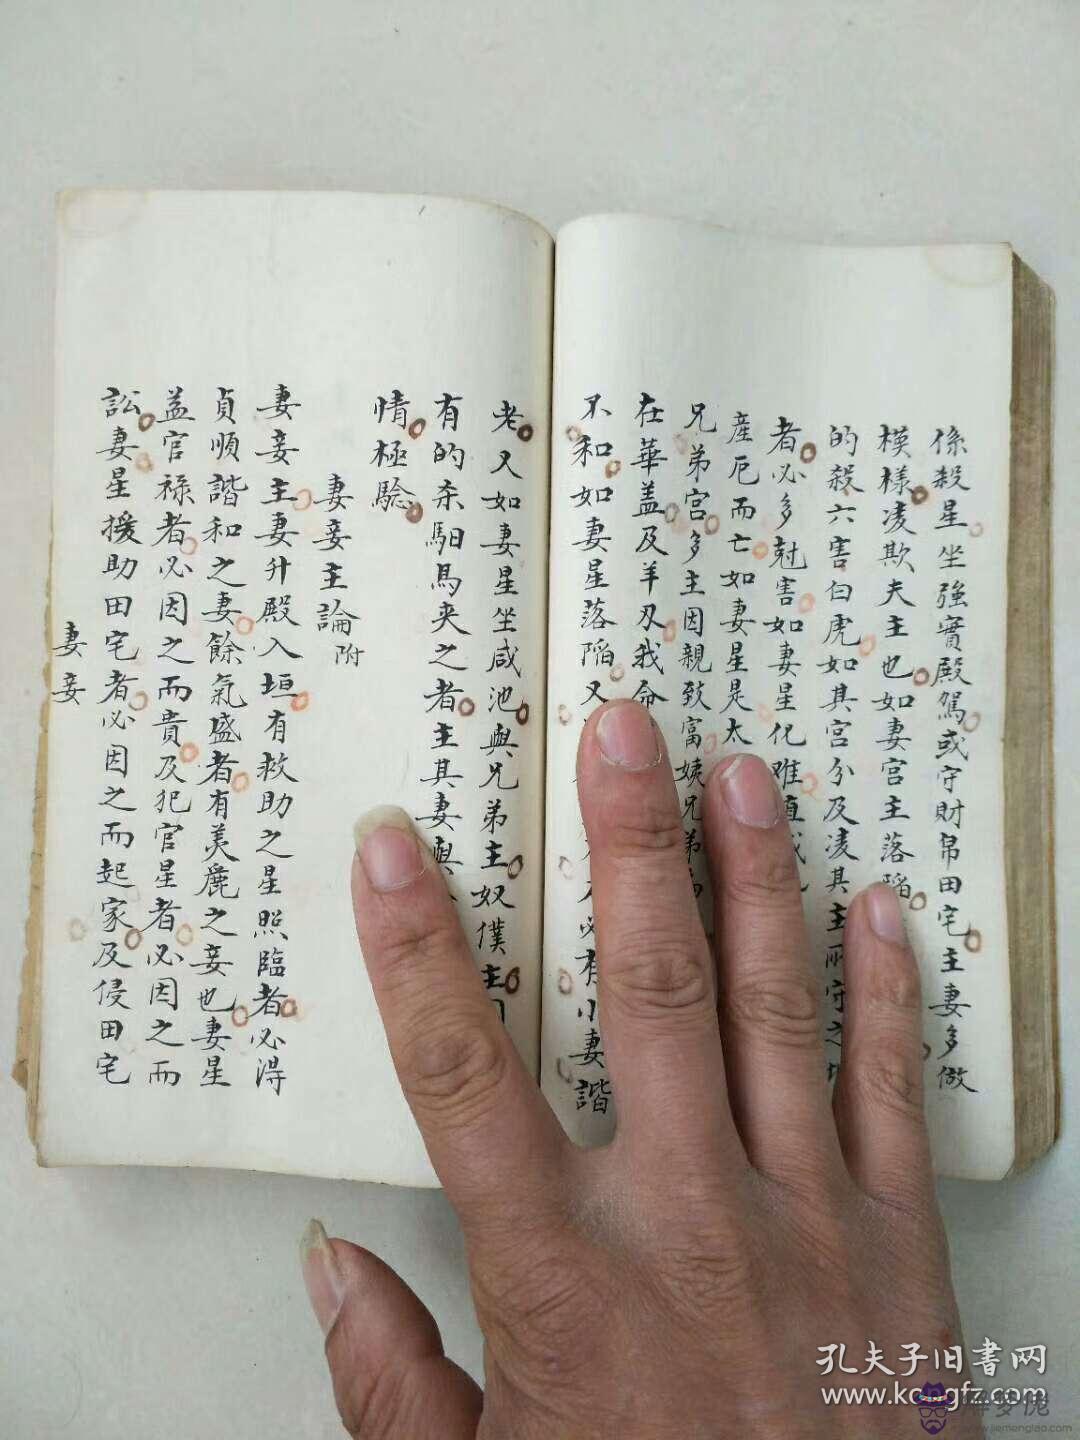 係殺星坐強實殿駕或守財帛田宅主妻多做
模樣凌欺夫主也如妻宮主落陷
的殺六害白虎如其宮分及凌其主
者必多尅害如妻星化难值
產厄而亡如妻星是太
兄弟宮多主因親致富姨兄弟
在華盖及羊刃我命
不和如妻星落陷又
必有小妻諧
老又如妻星坐咸池與兄弟主奴僕主
有的杀馹馬夹之者主其妻與
情極騐
妻妾主論附
妻妾主妻升殿入垣有救助之星照臨者必得
貞順諧和之妻餘氣盛者有美麗之妾也妻星
盖官禄者必因之而貴及犯官星者必因之而
訟妻星援助田宅者必因之而起家及侵田宅
妻妾
孔夫子旧书网
www.kongfz.com
www.jiemenglao.com